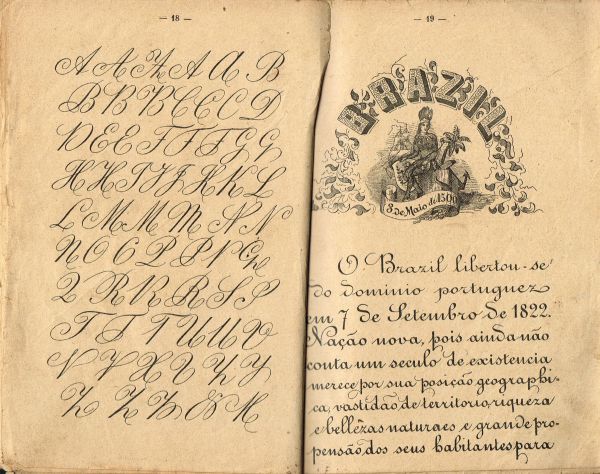 — 18 —
A A A A A B
B B B C C C D
D E E F F F G G
H H I I J H K L
L M M M N N
N O O P P N Ch
Q R R R S S
T T T U U V
V V X V Z Y
Z Z Z & M
— 19 —
BRAZIL
3 de Maio de 1500
O Brazil libertou-se
do dominio portuguez
em 7 de Setembro de 1822.
Nação nova, pois ainda não
conta um seculo de existencia
merece por sua posição geographi-
ca, vastidão de territorio, riqueza
e bellêzas naturaes e grande pro-
pensão dos seus habitantes para